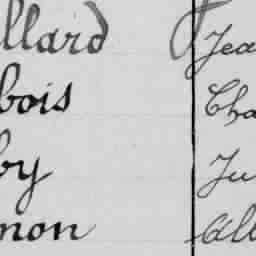 llard Jea
bois Cha
by Ju
mon All